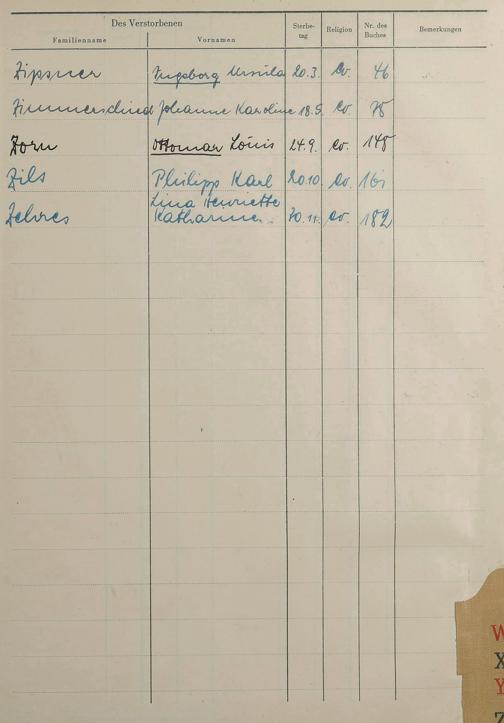 Des Verstorbenen
Sterbe-
tag
Religion
Nr. des
Buches
Bemerkungen
Familienname
Vornamen
Zipsner Ingeborg Ursula 20.3. ev. 46
Zimmerschied Johanne Karoline 18.5. ev. 78
Zorn Ottomar Louis 24.9. ev. 148
Zils Philipp Karl 20.10. ev. 161
Lina Henriette
Zehres Katharina 30.11. ev. 182
W
X
Y
Z